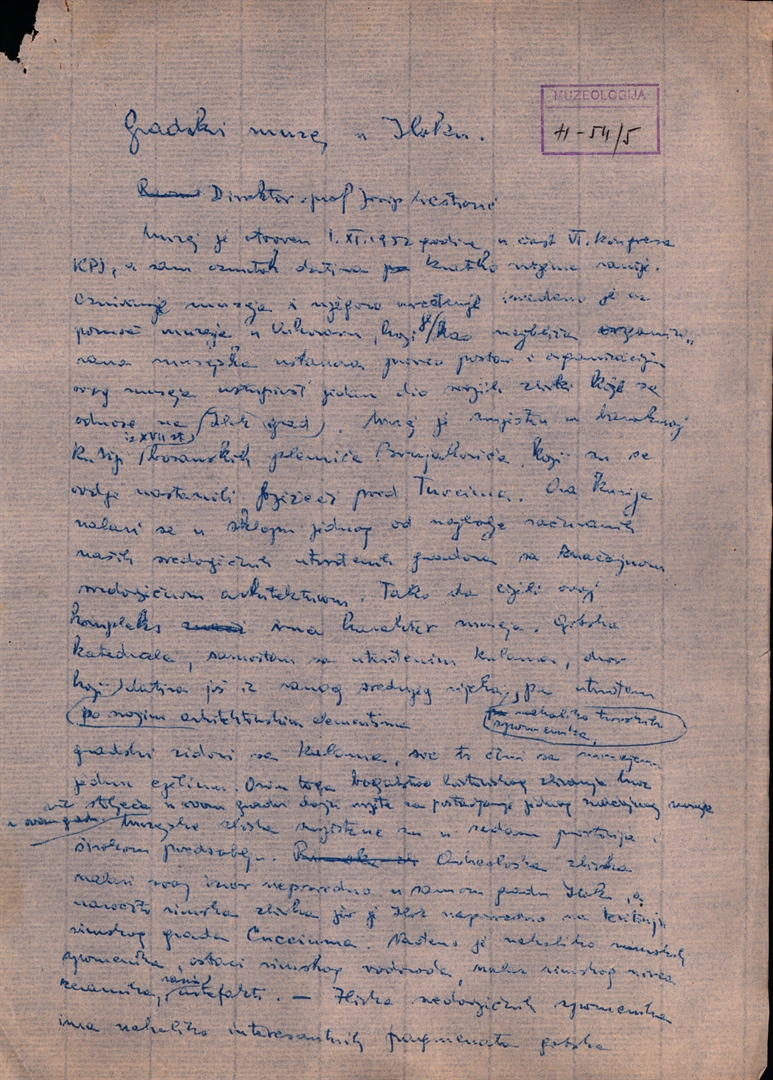 MUZEOLOGIJA
H-54/5
Gradski muzej u Iloku.
Direktor prof Josip
Muzej je otvoren 1. XI. 1952 godine, u čast VI. kongresa
KPJ, a sam začetak datira kratko vrijeme ranije.
Osnivanje muzeja i njegovo uređenje izvedeno je uz
pomoć muzeja u Vukovaru, koji je kao najbliža organizi-
rana muzejska ustanova postav i organizaciju
ovog muzeja ustupivši jedan dio svojih zbirki koje se
odnose na Ilok grad. Muzej je smješten u baroknoj
iz XVII st.
kuriji bosanskih plemića koji su se
ovdje nastanili bježeći pred Turcima. Ova kurija
nalazi se u sklopu jednog od najbolje sačuvanih
naših srednjovječnih utvrđenih gradova sa značajnom
srednjovječnom arhitekturom. Tako da cijeli ovaj
kompleks ima karakter muzeja. Gotska
katedrala, samostan sa utvrđenim kulama, dvor
koji datira još iz ranog srednjeg vijeka,
po svojim arhitektonskim elementima
nekoliko turskih
spomenika,
gradski zidovi sa kulama, sve to čini sa muzejem
jednu cjelinu. Osim toga bogatstvo historijskog zbivanja kroz
stoljeća u ovom gradu daju uvjete za postavljanje jednog značajnog muzeja
u ovom gradu. Muzejske zbirke smještene su u sedam prostorija i
širokom predsoblju. Arheološka zbirka
nalazi svoj izvor neposredno u samom gradu Ilok, a
naročito rimska zbirka jer je Ilok napredno na
rimskog grada Cucciuma. Nađeno je nekoliko rimskih
spomenika, ostaci rimskog vodovoda, nalaz rimskog novca
keramika, razni artefakti. — Zbirka srednjovječnih spomenika
ima nekoliko interesantnih fragmenata gotske